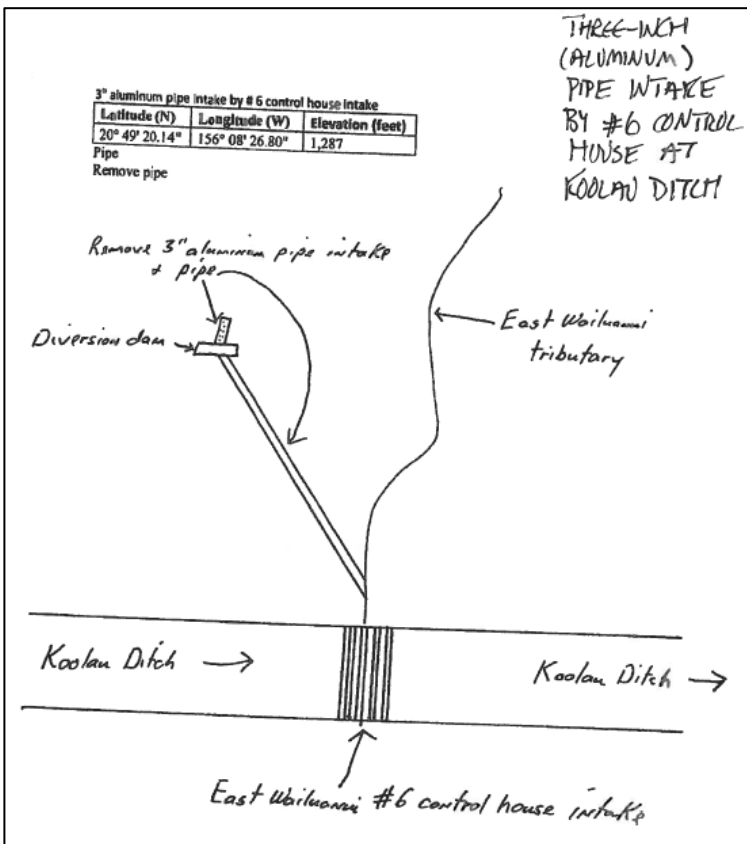 THREE-INCH
(ALUMINUM)
PIPE INTAKE
BY #6 CONTROL
HOUSE AT
KOOLAU DITCH
3" aluminum pipe intake by # 6 control house intake
Latitude (N) Longitude (W) Elevation (feet)
20° 49' 20.14" 156° 08' 26.80" 1,287
Pipe
Remove pipe
Remove 3" aluminum pipe intake
+ pipe
Diversion dam
East Wailuanui
tributary
Koolau Ditch
Koolau Ditch
East Wailuanui #6 control house intake